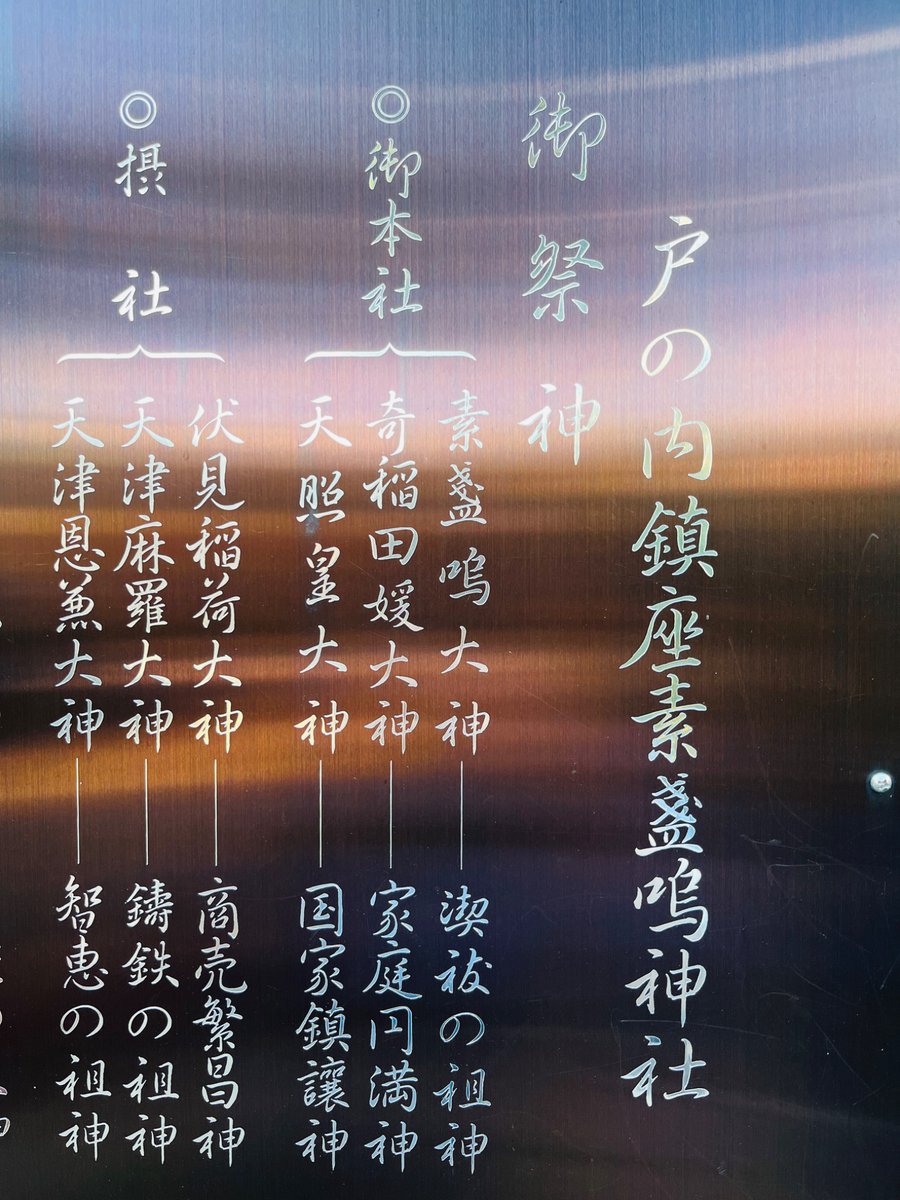 戸の内鎮座素盞嗚神社
御祭神
◎御本社
素盞嗚大神―禊祓の祖神
奇稲田媛大神―家庭円満神
天照皇大神―国家鎮譲神
◎摂社
伏見稲荷大神―商売繁昌神
天津麻羅大神―鋳鉄の祖神
天津恩兼大神―智恵の祖神